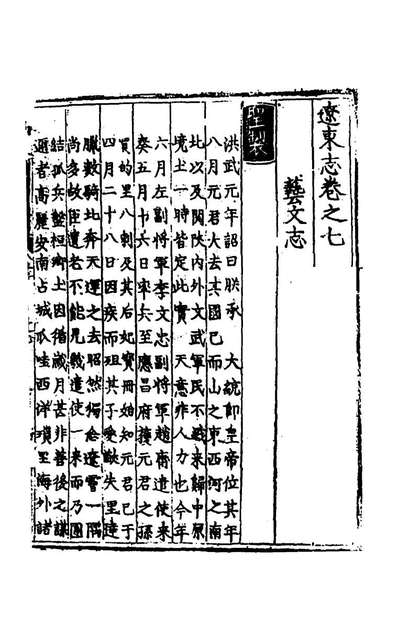 遼東志卷之七
藝文志
聖製
洪武元年詔曰朕承　大統卽皇帝位其年
八月元君大去其國已而山之東西河之南
北以及関陕内外文武軍民不戰来歸中原
境土一時皆定此實　天意非人力也今年
六月左副将軍李文忠副将軍趙庸遣使来
奏五月十六日率兵至應昌府獲元君之孫
買的里八剌及其后妃寶冊始知元君已于
四月二十八日因疾而殂其子愛猷失里達
臘數騎北奔天運之去昭然獨念遼霫一隅
尚多故臣遺老不能見幾遣使一来而乃團
結孤兵盤桓鄉土因循歲月甚非善後之謀
邇者高麗安南占城爪哇西洋瑣里海外諸